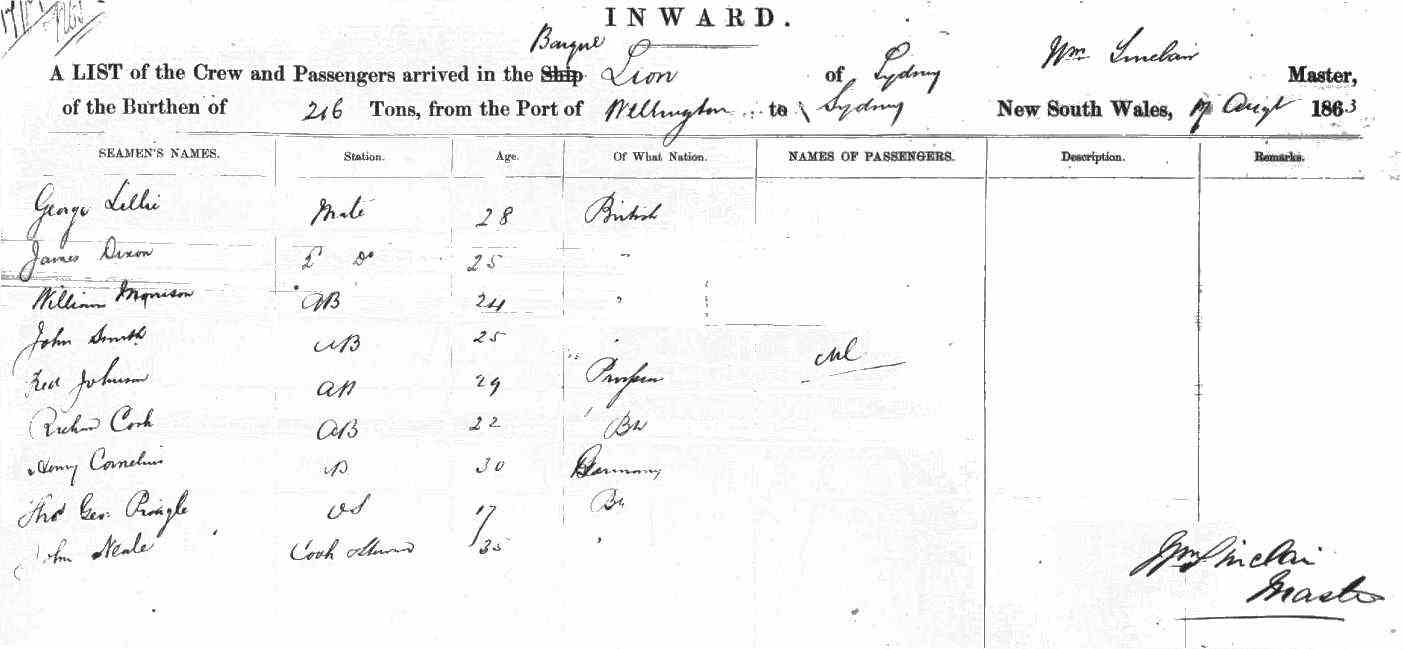 INWARD.
Barque
A LIST of the Crew and Passengers arrived in the Ship Lion of Sydney Wm Sinclair Master,
of the Burthen of 216 Tons, from the Port of Wellington to Sydney New South Wales, 17 Augt 1863
SEAMEN'S NAMES. Station. Age. Of What Nation. NAMES OF PASSENGERS. Description. Remarks.
George Lillie Mate 28 British
James Dixon 2 Do 25 "
William Morrison AB 24 "
John Smith AB 25 "
Fred Johnson AB 29 Prussia Nil
Richard Cook AB 22 Br
Henry Cornelius 30 Germany
Thos Geo: Pringle OS 17 Br
John Neale Cook & Steward 35 "
Wm Sinclair
Master